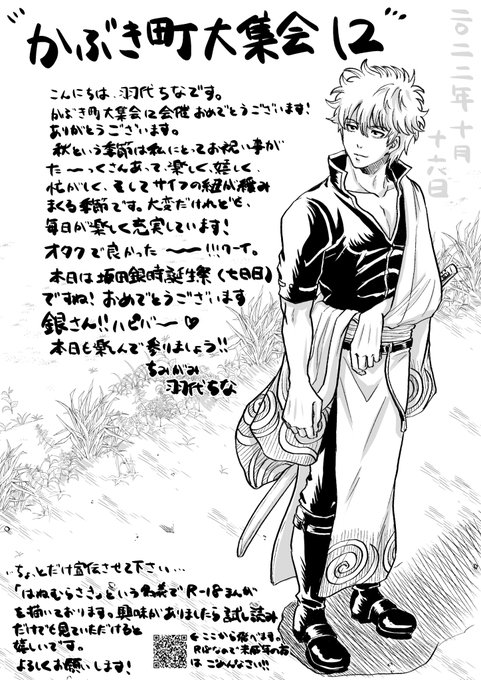 "かぶき町大集会12"
二〇二二年十月
十六日
こんにちは、羽代ちなです。
かぶき町大集会12会催おめでとうございます!
ありがとうございます。
秋という季節は私にとってお祝い事が
た〜っくさんあって、楽しく、嬉しく、
忙がしく、そしてサイフの紐が緩み
まくる季節です。大変だけれども、
毎日が楽しく充実しています!
オタクで良かった〜〜!!!ワーイ。
本日は坂田銀時誕生祭(七日目)
ですね!おめでとうございます
銀さん!!ハピバ〜♡
本日も楽しんで参りましょう!!
ちみがみ
羽代ちな
…ちょっとだけ宣伝させて下さい…
「はねむらさき」という名義でR-18まんが
を描いております。興味がありましたら試し読み
だけでも見ていただけると
嬉しいです。
よろしくお願いします!
←ここから飛べます。
R18なので未成年の方
はごめんなさい!!